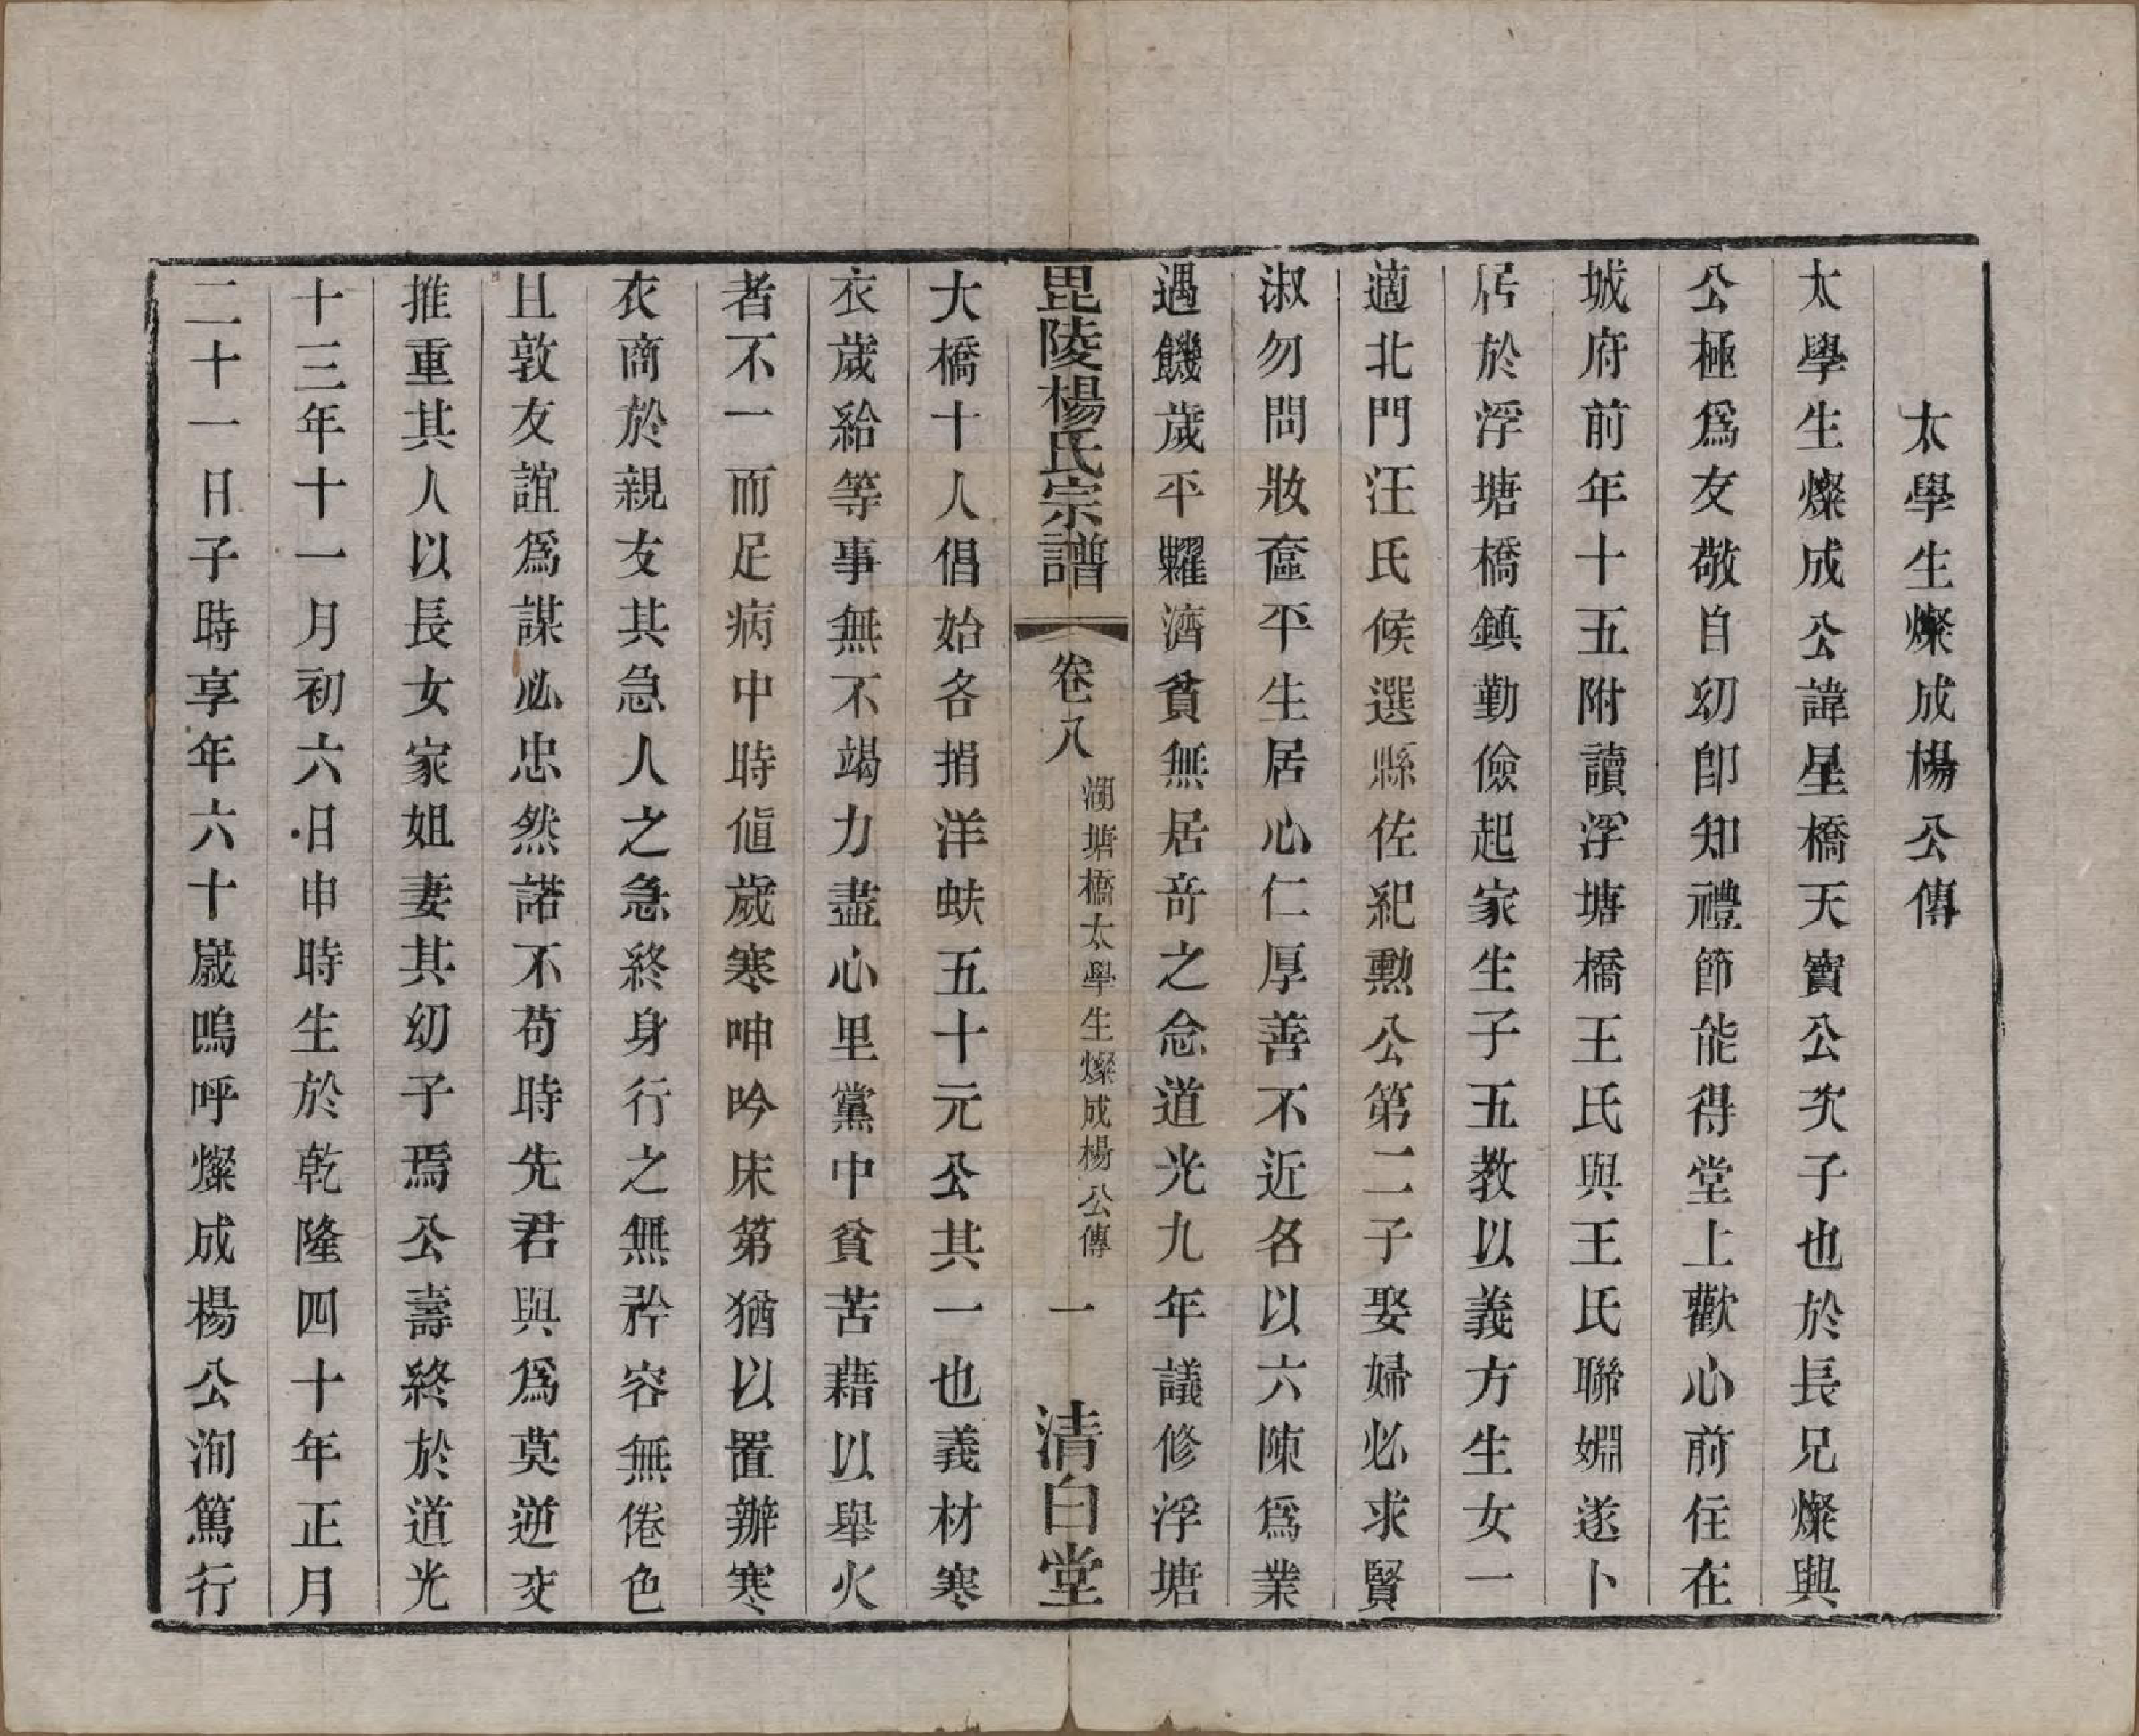 太學生燦成楊公傳
太學生燦成公諱星橋天寶公次子也於長兄燦興
公極爲友敬自幼卽知禮節能得堂上歡心前住在
城府前年十五附讀浮塘橋王氏與王氏聯婣遂卜
居於浮塘橋鎮勤儉起家生子五教以義方生女一
適北門汪氏候選縣佐紀勲公第二子娶婦必求賢
淑勿問妝奩平生居心仁厚善不近名以六陳爲業
遇饑歲平糶濟貧無居奇之念道光九年議修浮塘
毘陵楊氏宗譜 卷八 湖塘橋太學生燦成楊公傳 一 清白堂
大橋十人倡始各捐洋蚨五十元公其一也義材寒
衣歲給等事無不竭力盡心里黨中貧苦藉以舉火
者不一而足病中時値歲寒呻吟床第猶以置辦寒
衣商於親友其急人之急終身行之無矜容無倦色
且敦友誼爲謀必忠然諾不苟時先君與爲莫逆交
推重其人以長女家姐妻其幼子焉公壽終於道光
十三年十一月初六日申時生於乾隆四十年正月
二十一日子時享年六十歲嗚呼燦成楊公洵篤行